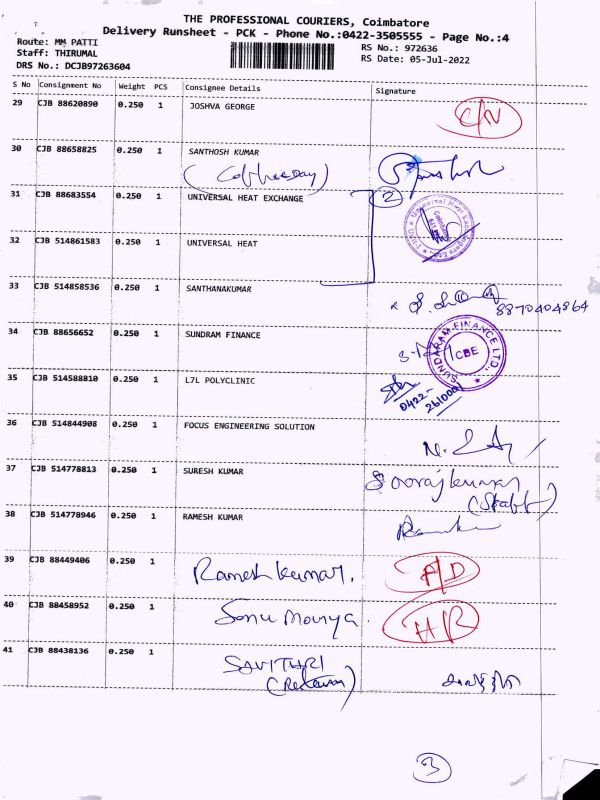 THE PROFESSIONAL COURIERS, Coimbatore
Delivery Runsheet - PCK - Phone No.:0422-3505555 - Page No.:4
Route: MM PATTI
Staff: THIRUMAL
DRS No.: DCJB97263604
RS No.: 972636
RS Date: 05-Jul-2022
S No Consignment No Weight PCS Consignee Details Signature
29 CJB 88620890 0.250 1 JOSHVA GEORGE
30 CJB 88658825 0.250 1 SANTHOSH KUMAR
31 CJB 88683554 0.250 1 UNIVERSAL HEAT EXCHANGE 2
32 CJB 514861583 0.250 1 UNIVERSAL HEAT
33 CJB 514858536 0.250 1 SANTHANAKUMAR
8870404864
34 CJB 88656652 0.250 1 SUNDRAM FINANCE
SUNDARAM FINANCE LTD.,
CBE
35 CJB 514588810 0.250 1 L7L POLYCLINIC
0422-
36 CJB 514844908 0.250 1 FOCUS ENGINEERING SOLUTION
37 CJB 514778813 0.250 1 SURESH KUMAR
Soorajkumar
(Staff)
38 CJB 514778946 0.250 1 RAMESH KUMAR
39 CJB 88449406 0.250 1 Ramesh Kumar. A/D
40 CJB 88458952 0.250 1 Sonu Mourya.
41 CJB 88438136 0.250 1 SAVITHRI
3